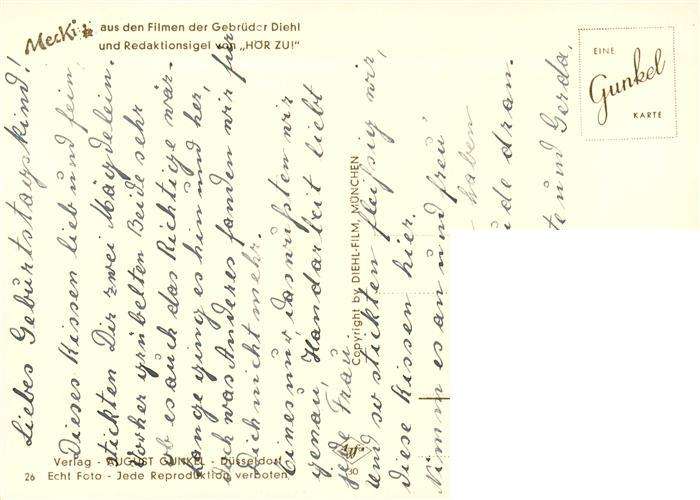 Mecki
aus den Filmen der Gebrüder Diehl
und Redaktionsigel von „HÖR ZU!“
EINE
Gunkel
KARTE
Liebes Geburtstagskind!
Dieses Kissen lieb und fein,
stickten Dir zwei Mägdelein.
Vorher grübelten Beide sehr
ob es auch das Richtige wär.
Lange ging es hin und her,
doch was Anderes fanden wir für
Dich nicht mehr.
Eines nur, das wußten wir
genau, Handarbeit liebt
jede Frau.
Und so stickten fleißig wir,
diese Kissen hier.
Nimm es an und freu'
haben
de dran.
te und Gerda.
Copyright by DIEHL-FILM, MÜNCHEN
Agfa
Verlag - AUGUST GUNKEL - Düsseldorf
26 Echt Foto - Jede Reproduktion verboten
30